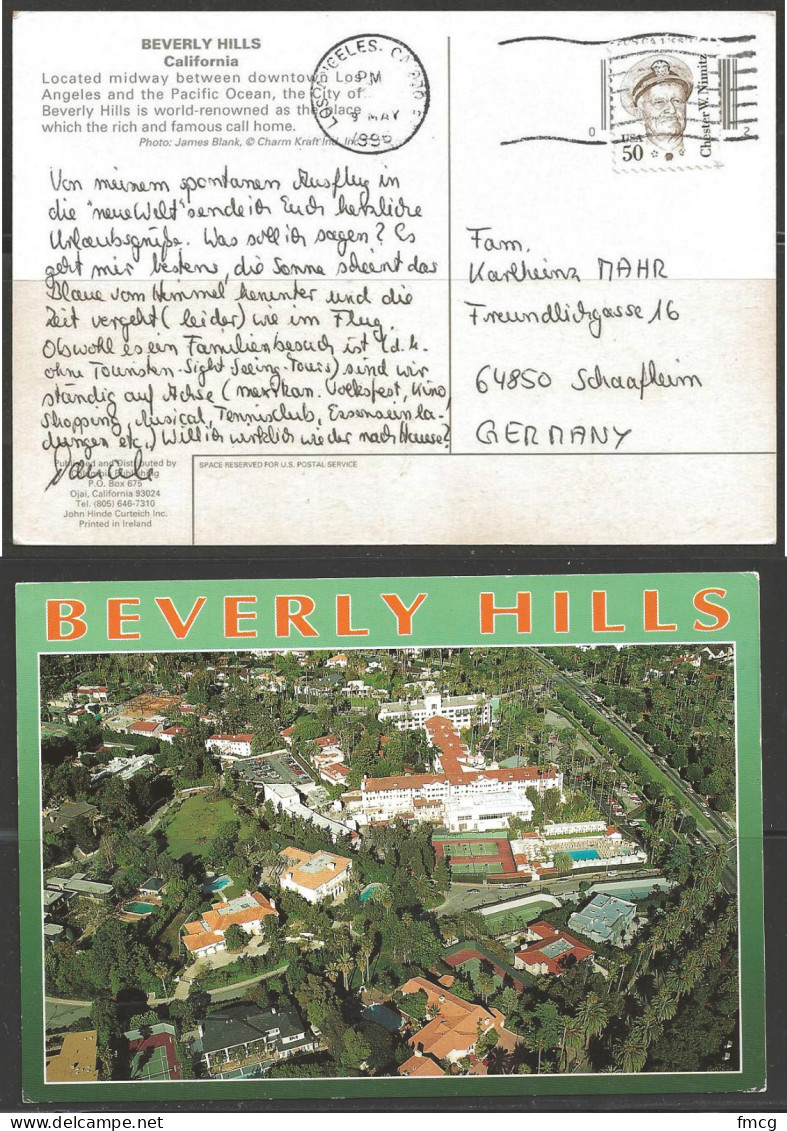 BEVERLY HILLS
California
Located midway between downtown Los
Angeles and the Pacific Ocean, the City of
Beverly Hills is world-renowned as the place
which the rich and famous call home.
Photo: James Blank, © Charm Kraft Ind. Inc.
LOS ANGELES, CA
PM
9 MAY
1996
USA
50
Chester W. Nimitz
0
2
Von meinem spontanen Ausflug in
die "neue Welt" sende ich Euch herzliche
Urlaubsgrüße. Was soll ich sagen? Es
geht mir bestens, die Sonne scheint das
Blaue vom Himmel herunter und die
Zeit vergeht (leider) wie im Flug.
Obwohl es ein Familienbesuch ist (d.h.
ohne Touristen-Sight Seeing-Tours) sind wir
ständig auf Achse (mexikan. Volksfest, Kino,
Shopping, Musical, Tennisclub, Essenseinla-
dungen etc.) Will ich wirklich wieder nach Hause?
Fam.
Karlheinz MAHR
Freundlichgasse 16
64850 Schaafheim
GERMANY
Published and Distributed by
Publishing
P.O. Box 675
Ojai, California 93024
Tel. (805) 646-7310
John Hinde Curteich Inc.
Printed in Ireland
SPACE RESERVED FOR U.S. POSTAL SERVICE
BEVERLY HILLS
fmcg